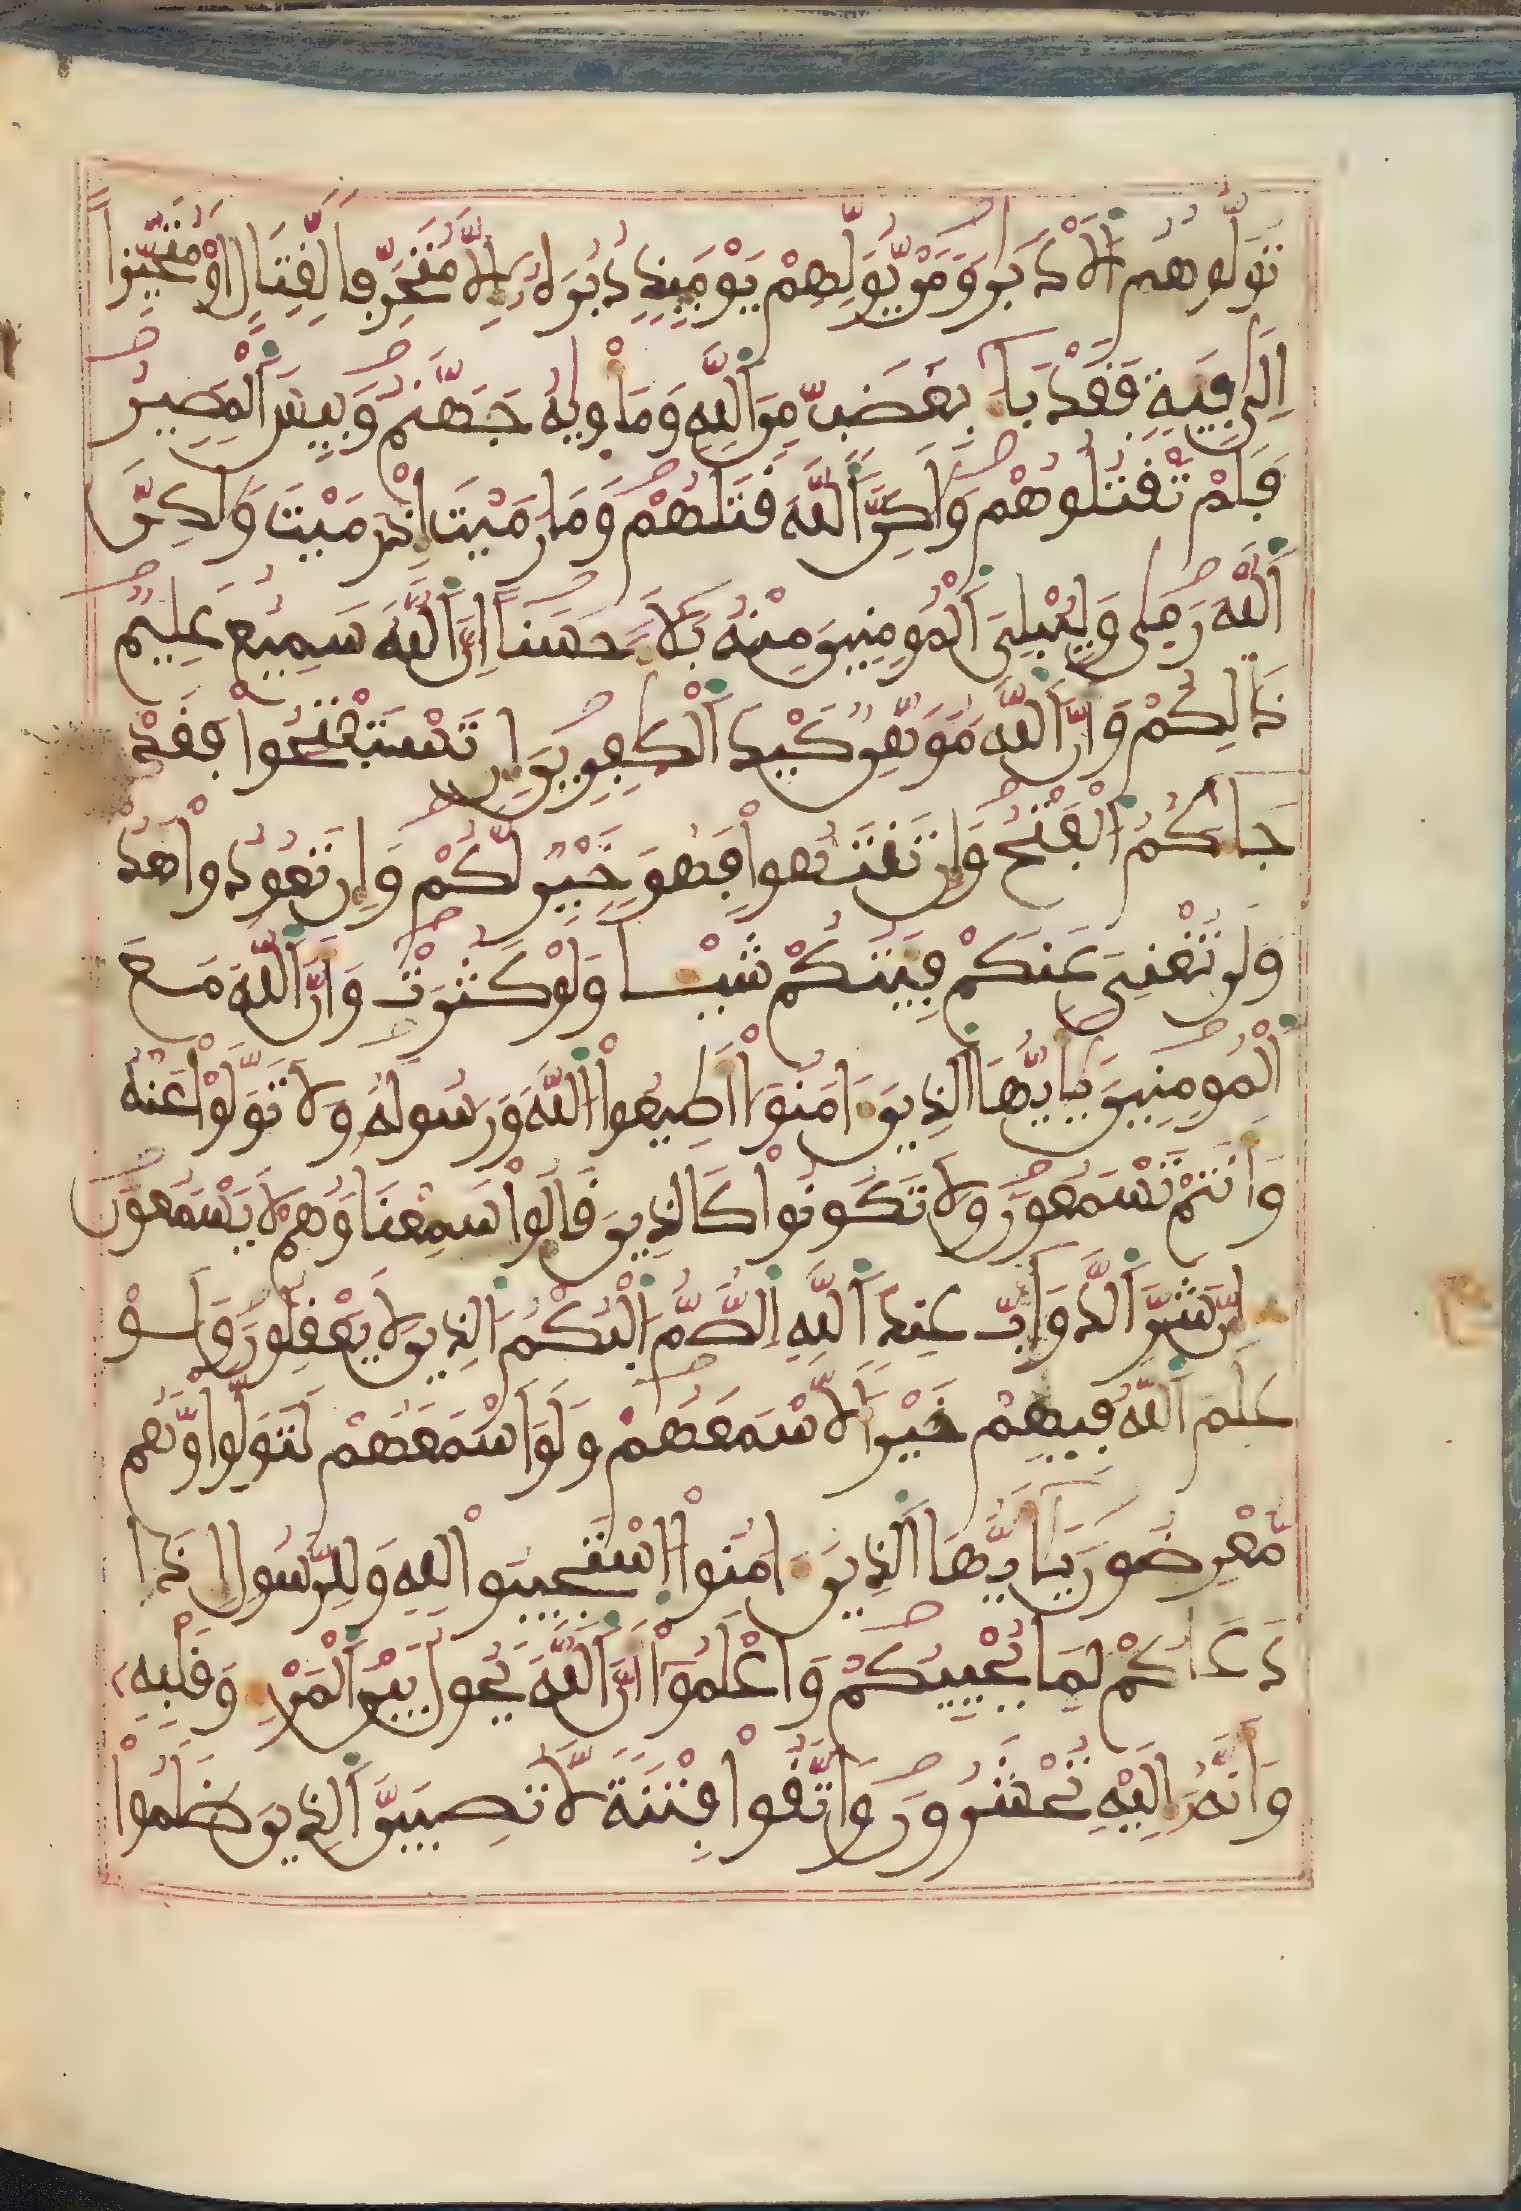 تُوَلُّوهُمُ اُ۬لَادْبَٰرَ وَمَنْ يُّوَلِّهِمْ يَوْمَئِذٍ دُبُرَهُۥٓ إِلَّا مُتَحَرِّفاٗ لِّقِتَالٍ اَوْ مُتَحَيِّزاً
اِلَىٰ فِئَةٖ فَقَدْ بَآءَ بِغَضَبٖ مِّنَ اَ۬للَّهِ وَمَأْوٜيٰهُ جَهَنَّمُ وَبِيسَ اَ۬لْمَصِيرُ
فَلَمْ تَقْتُلُوهُمْ وَلَٰكِنَّ اَ۬للَّهَ قَتَلَهُمْ وَمَا رَمَيْتَ إِذْ رَمَيْتَ وَلَٰكِنَّ
اَ۬للَّهَ رَمٜىٰ وَلِيُبْلِيَ اَ۬لْمُومِنِينَ مِنْهُ بَلَآءً حَسَناً اِنَّ اَ۬للَّهَ سَمِيعٌ عَلِيمٞ
ذَٰلِكُمْ وَأَنَّ اَ۬للَّهَ مُوَهِّنٞ كَيْدَ اَ۬لْكٰفِرِينَ إِن تَسْتَفْتِحُواْ فَقَدْ
جَآءَكُمُ اُ۬لْفَتْحُ وَإِن تَنتَهُواْ فَهُوَ خَيْرٞ لَّكُمْ وَإِن تَعُودُواْ نَعُدْ
وَلَن تُغْنِيَ عَنكُمْ فِئَتُكُمْ شَيْـٔاٗ وَلَوْ كَثُرَتْ وَأَنَّ اَ۬للَّهَ مَعَ
اَ۬لْمُومِنِينَ يَٰٓأَيُّهَا اَ۬لذِينَ ءَامَنُوٓاْ أَطِيعُواْ اُ۬للَّهَ وَرَسُولَهُۥ وَلَا تَوَلَّوْاْ عَنْهُ
وَأَنتُمْ تَسْمَعُونَ وَلَا تَكُونُواْ كَالذِينَ قَالُواْ سَمِعْنَا وَهُمْ لَا يَسْمَعُونَ
إِنَّ شَرَّ اَ۬لدَّوَآبِّ عِندَ اَ۬للَّهِ اِ۬لصُّمُّ اُ۬لْبُكْمُ اُ۬لذِينَ لَا يَعْقِلُونَ وَلَوْ
عَلِمَ اَ۬للَّهُ فِيهِمْ خَيْراٗ لَّأَسْمَعَهُمْ وَلَوَ اَسْمَعَهُمْ لَتَوَلَّواْ وَّهُم
مُّعْرِضُونَ يَٰٓأَيُّهَا اَ۬لذِينَ ءَامَنُواْ اُ۪سْتَجِيبُواْ لِلهِ وَلِلرَّسُولِ إِذَا
دَعَاكُمْ لِمَا يُحْيِيكُمْ وَاعْلَمُوٓاْ أَنَّ اَ۬للَّهَ يَحُولُ بَيْنَ اَ۬لْمَرْءِ وَقَلْبِهِۦ
وَأَنَّهُۥٓ إِلَيْهِ تُحْشَرُونَ وَاتَّقُواْ فِتْنَةٗ لَّا تُصِيبَنَّ اَ۬لذِينَ ظَلَمُواْ